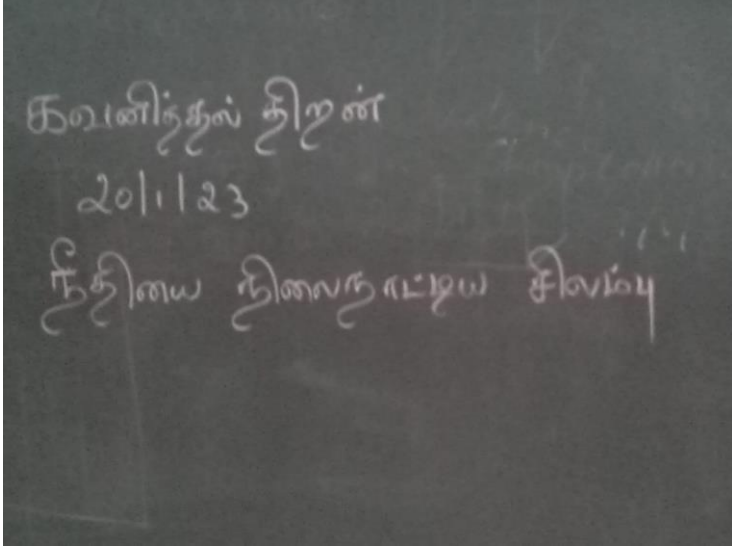 கவனித்தல் திறன்
20/1/23
நீதியை நிலைநாட்டிய சிலம்பு